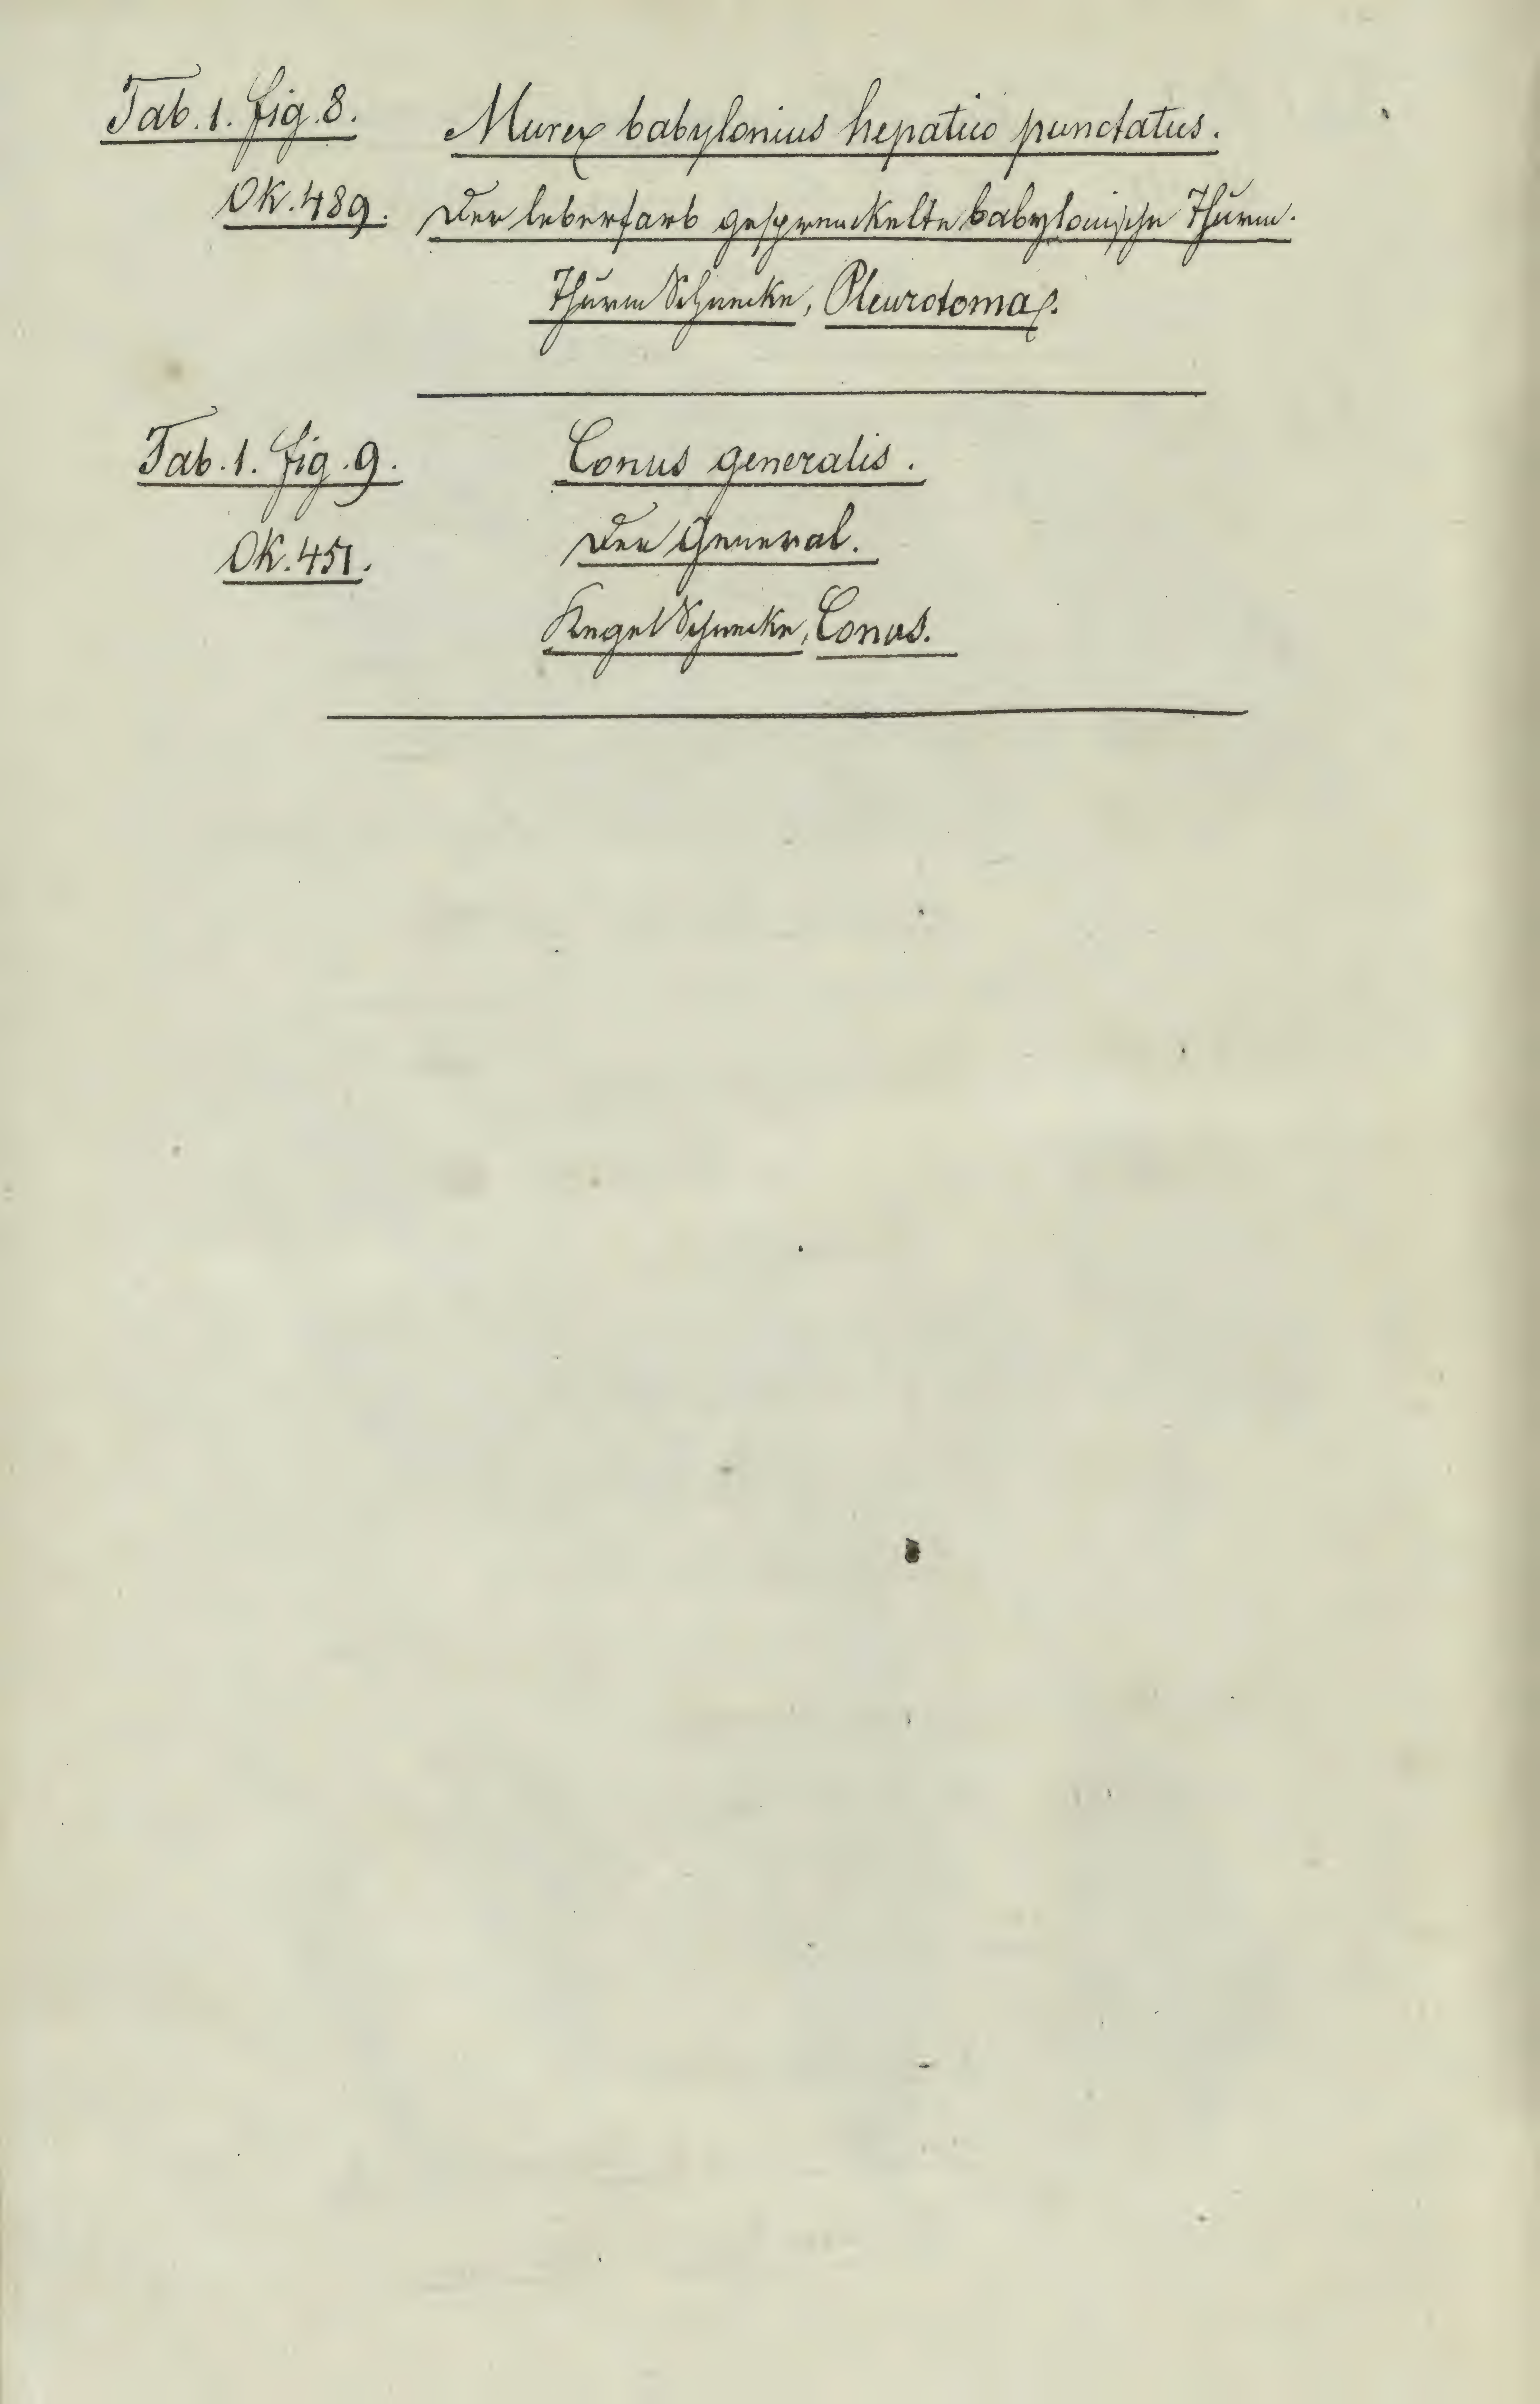 Tab. 1. fig. 8. Murex babylonius hepatico punctatus.
OK. 489. Der leberfarb gesprenckelte babylonische Thurm.
Thurm Schnecke, Pleurotoma.
Tab. 1. fig. 9. Conus generalis.
OK. 451. Der General.
Kegel Schnecke, Conus.